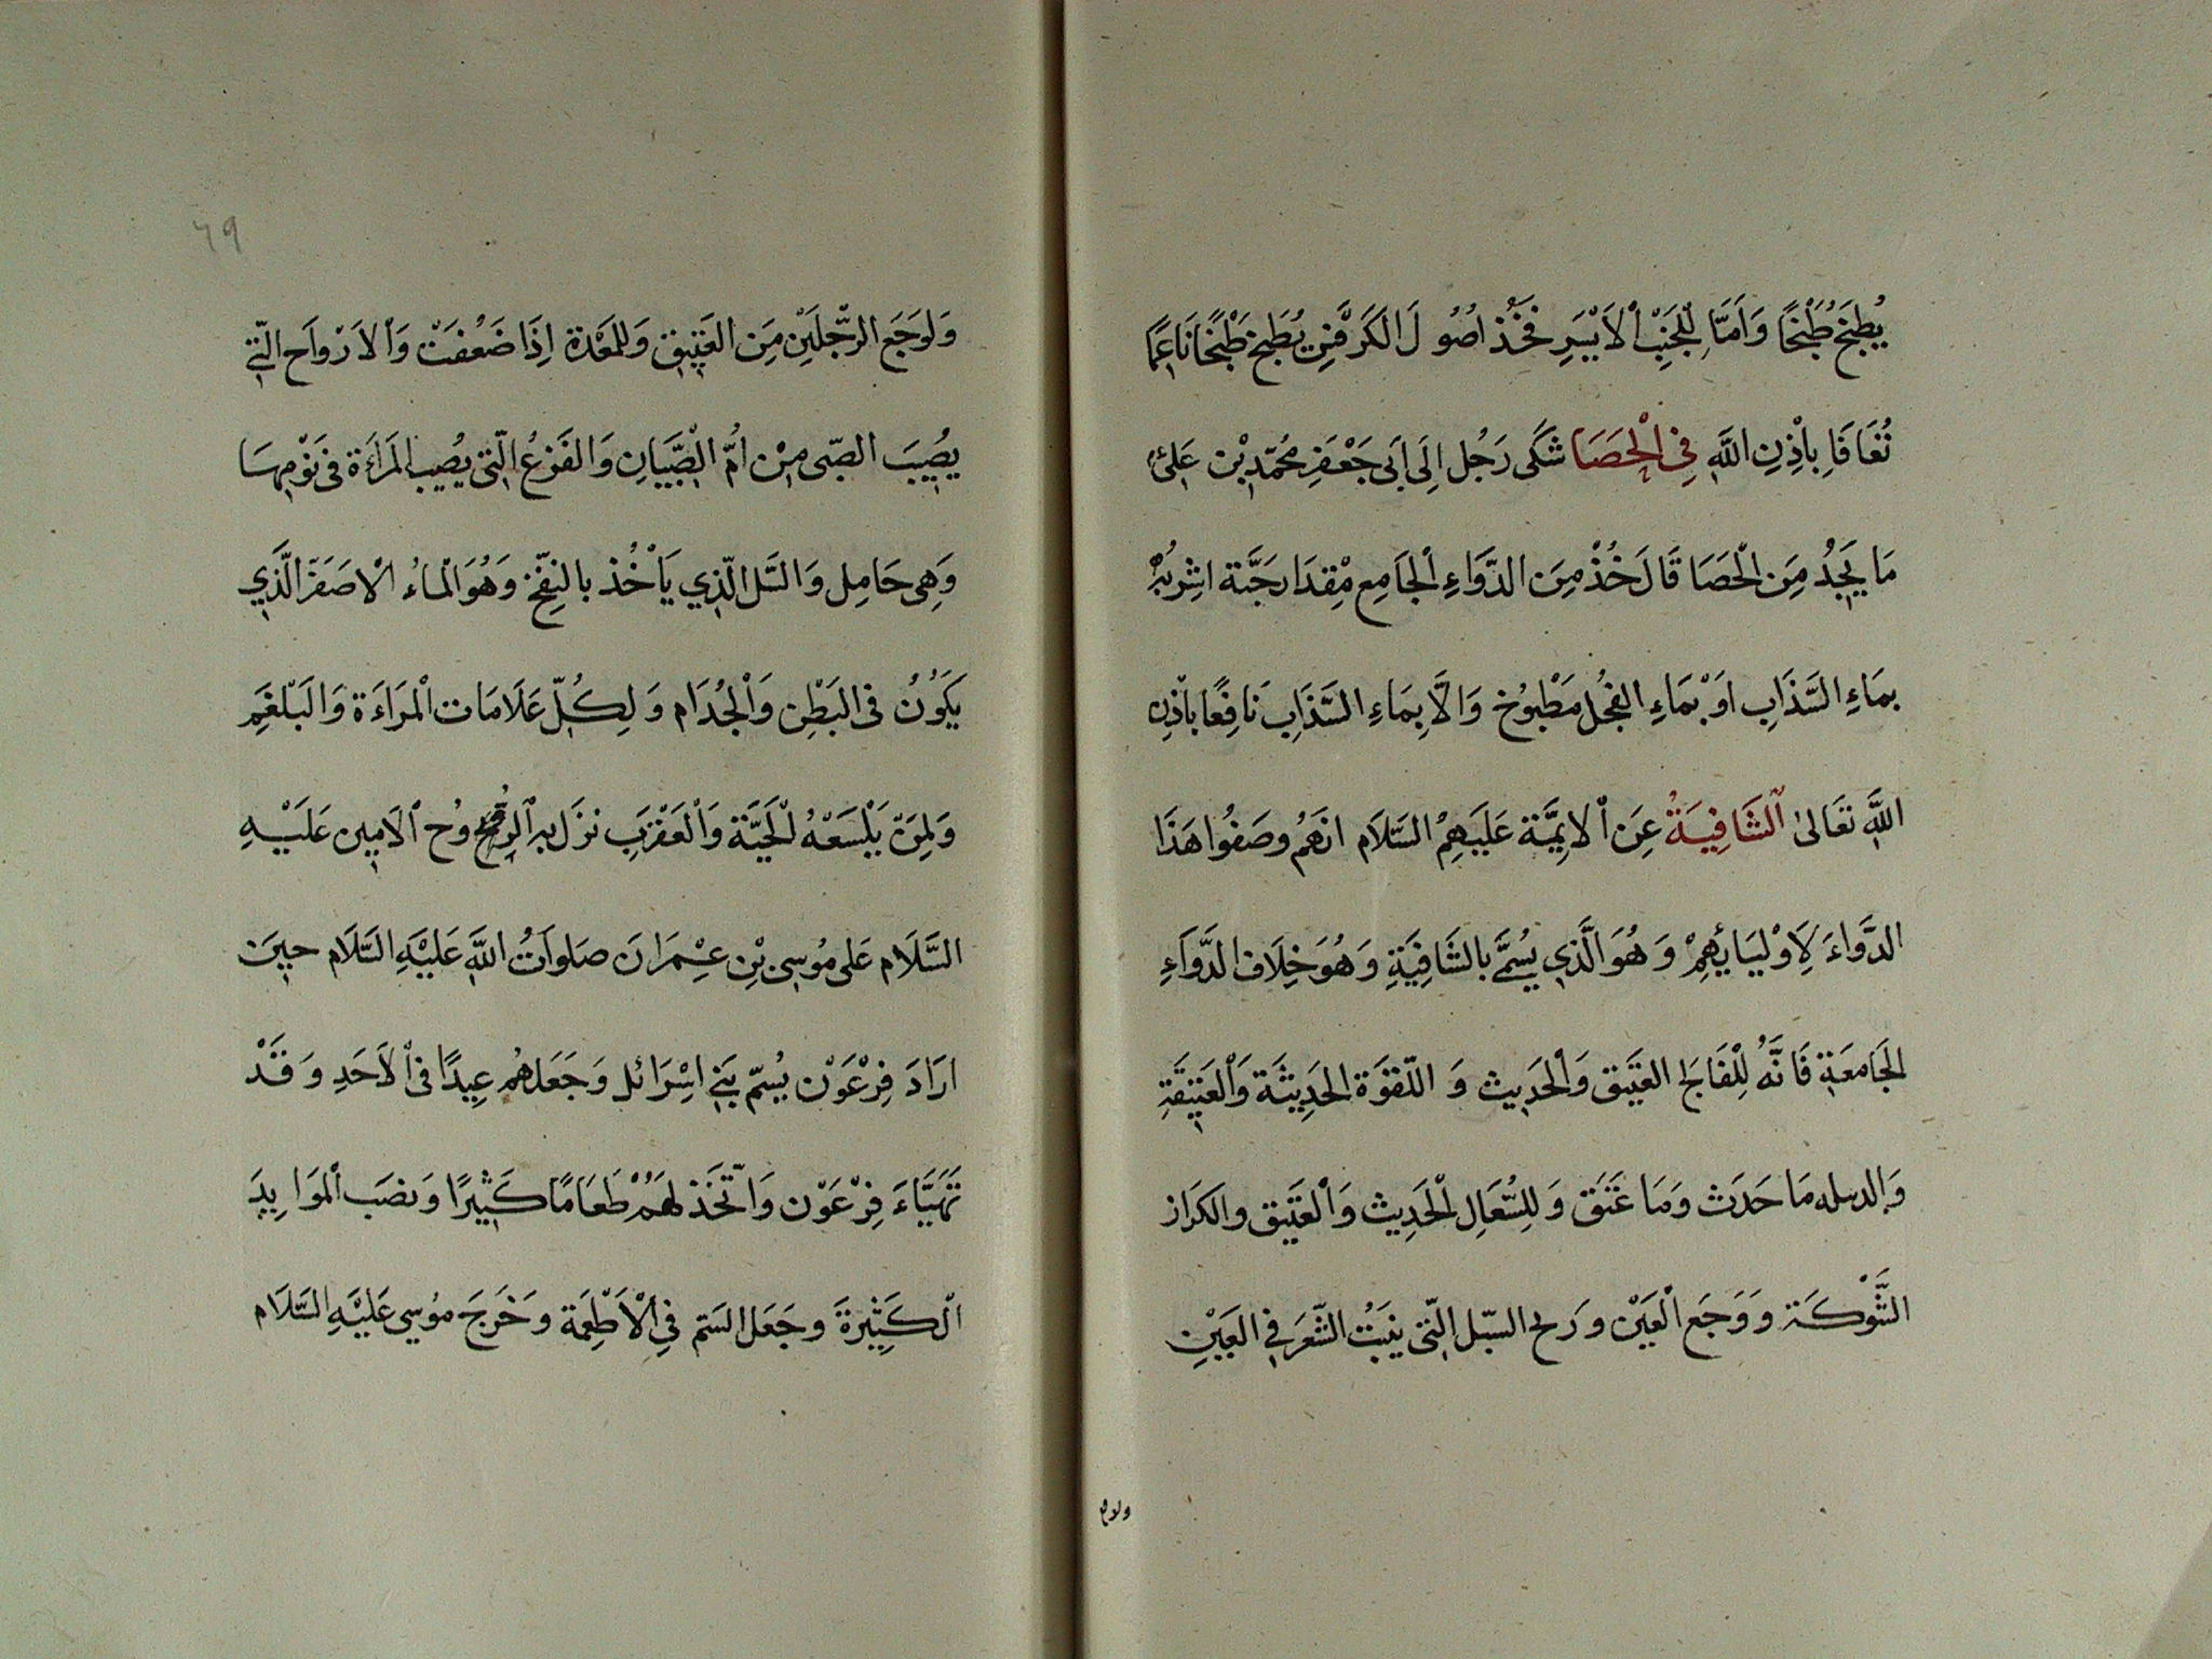 يُطبَخُ طَبْخًا وَاَمَّا لِلْجَنْبِ اْلاَيْسَرِ فَخُذْ اُصُولَ الْكَرَفْسِ يُطْبَخ طَبْخًا نَاعِمًا
تُعَافَا بِاْذِنِ اللَّهِ فِى اْلحَصَا شَكَى رَجُل اِلَى اَبَى جَعْفَرِ مُحَمّدِ بْن عَلِىّ
مَا يَجِدُ مِنَ الْحَصَا قَالَ خُذْ مِنَ الدَّوَاءِ اْلجَامِع مِقْدَار حَبَّة اشْرِبُهْ
بِمَاءِ السَّذَابِ اَوْ بِمَاءِ الفجُل مَطْبوُخ وَالاَّ بِمَاءِ السَّذَابِ نَافِعًا بِاْذِن
اللَّهِ تَعَالىٰ اْلشَافِيَةُ عِنَ اْلاَيِمَّة عَلَيْهِمُ السَّلاَم انَّهُمْ وصَفُوا هَذَا
الدَّوَاءَ لِاَوْلِيَائِهِمْ وَ هُوَ الَّذِي يُسَمَّى بالشَافِيَةِ وَ هُوَ خِلاَف الدَّوَاءِ
الجَامعَةِ فَانَّهُ لِلْفَالج العَتِيق وَاْلحَدِيث وَ اللّقْوَة الحَدِيثَة وَاْلعَتِيقَةِ
وَالدبيله مَا حَدَث وَمَا عَتَقَ وَلِلسُّعَالِ اْلحَدِيث وَاْلعَتِيق والكَزَاز
الشَّوْكَة وَوَجَع اْلعَيْن وَرَيح السّبَل الَّتى ينبَتُ الشَّعَر فِي العَيْنِ
ولاوع
٦٩
وَلِوَجَع الرّجلَيْن مِنَ العَتِيق وَللمَعْدَة اِذَا ضَعُفَتْ وَاْلاَرْوَاح الَّتِي
يُصِيبَ الصّبى مِنْ اُمّ الصِّبْيَانِ وَالفَزَعُ الّتى يُصِيب المَراَة فى نَوْمِهَا
وَهِى حَامِل وَالسّل الّذِي يَاْخُذ بالنفخ وَهُوَ الْمَاءُ اْلاصَفَر الَّذِي
يَكوُنُ فى البَطْنِ وَاْلجُذَام وَ لِكُلّ عَلاَمَات اْلمَراَءَة وَالبَلْغَمِ
وَلمِنَ يَلْسَعْهُ الْحَيَّة وَاْلعَقْرَبِ نزَل به الروُح اْلاَمِين عَلَيْهِ
السَّلَام عَلى مُوسِى بْنِ عِمْرَانَ صَلوَاتُ اللَّهِ عَلَيْهِ السَّلَام حِينَ
ارَادَ فِرْعَوْن يُسمّ بَنِي اِسْرَائل وَجَعَل هُم عِيدًا فى اْلاَحَدِ وَقَدْ
تَهَيَّاءَ فِرْعَوْن وَاتَّخَذ لهَمُ طَعَامًا كَثِيرًا وَنصَب اْلموَايِدَ
اْلكَثِيرَةَ وجَعَل السّم فِي اْلاَطْعِمَة وَخَرَجَ موُسِي عَليْهِ السَّلاَم